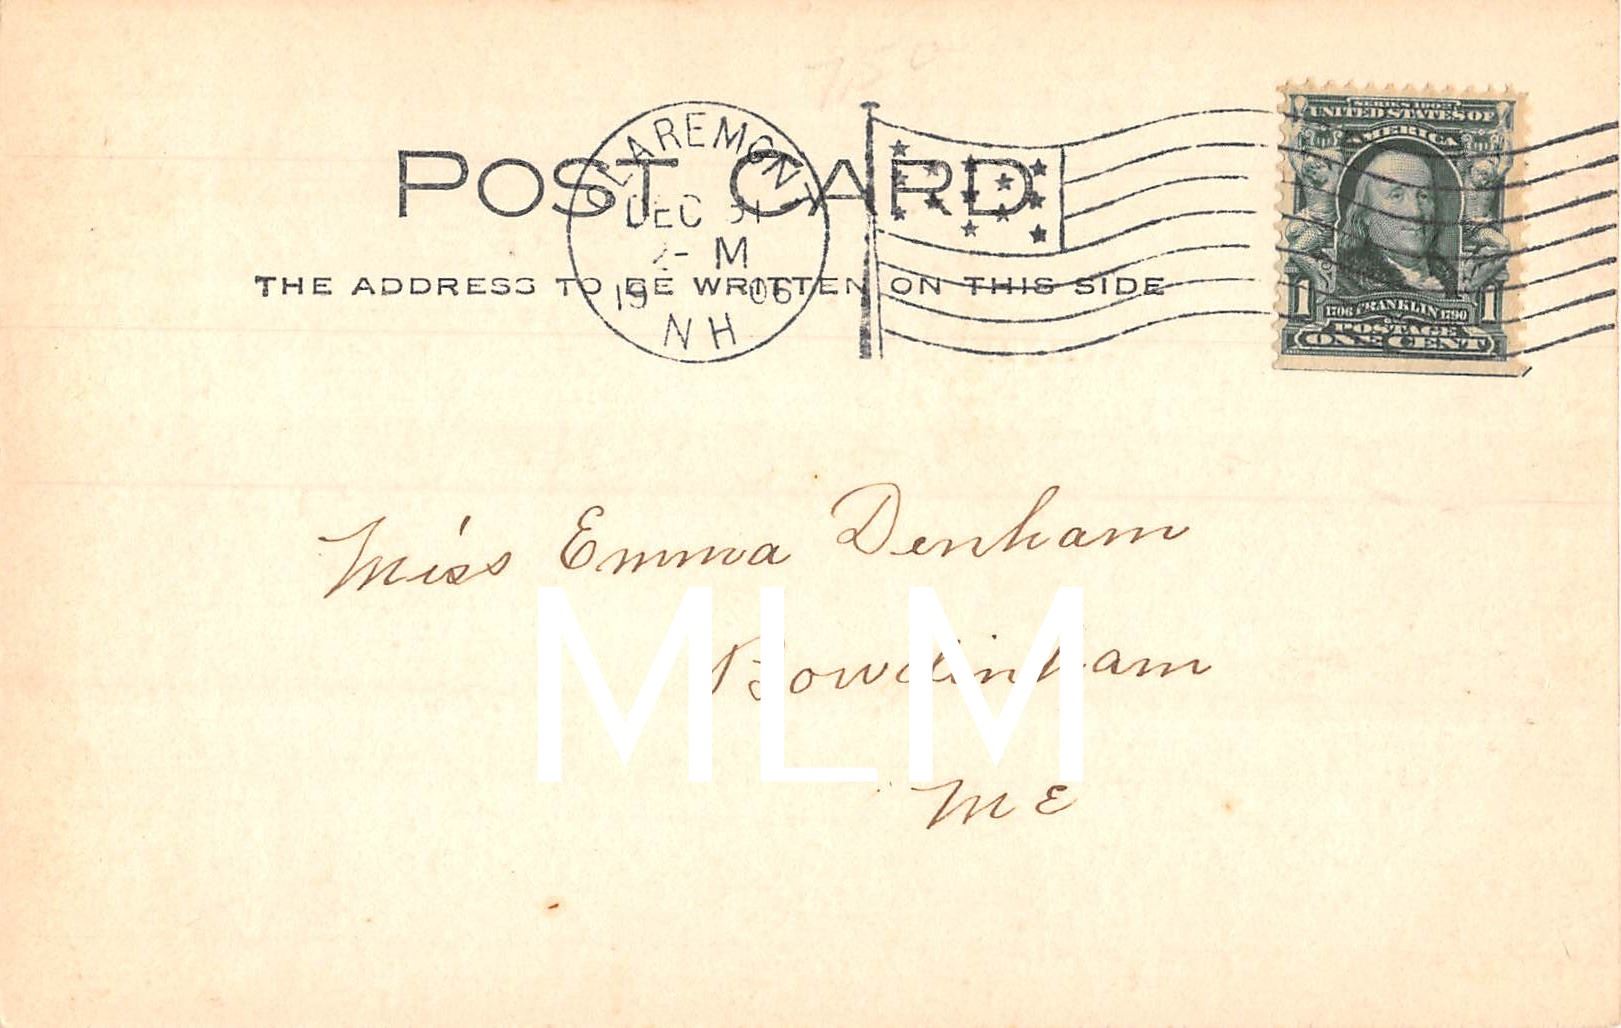 750
POST CARD
CLAREMONT
DEC 31
2- M
19 06
N H
THE ADDRESS TO BE WRITTEN ON THIS SIDE
SERIES 1902
UNITED STATES OF
AMERICA
1 1
1706 FRANKLIN 1790
POSTAGE
ONE CENT
Miss Emma Denham
Bowdinham
ME
MLM